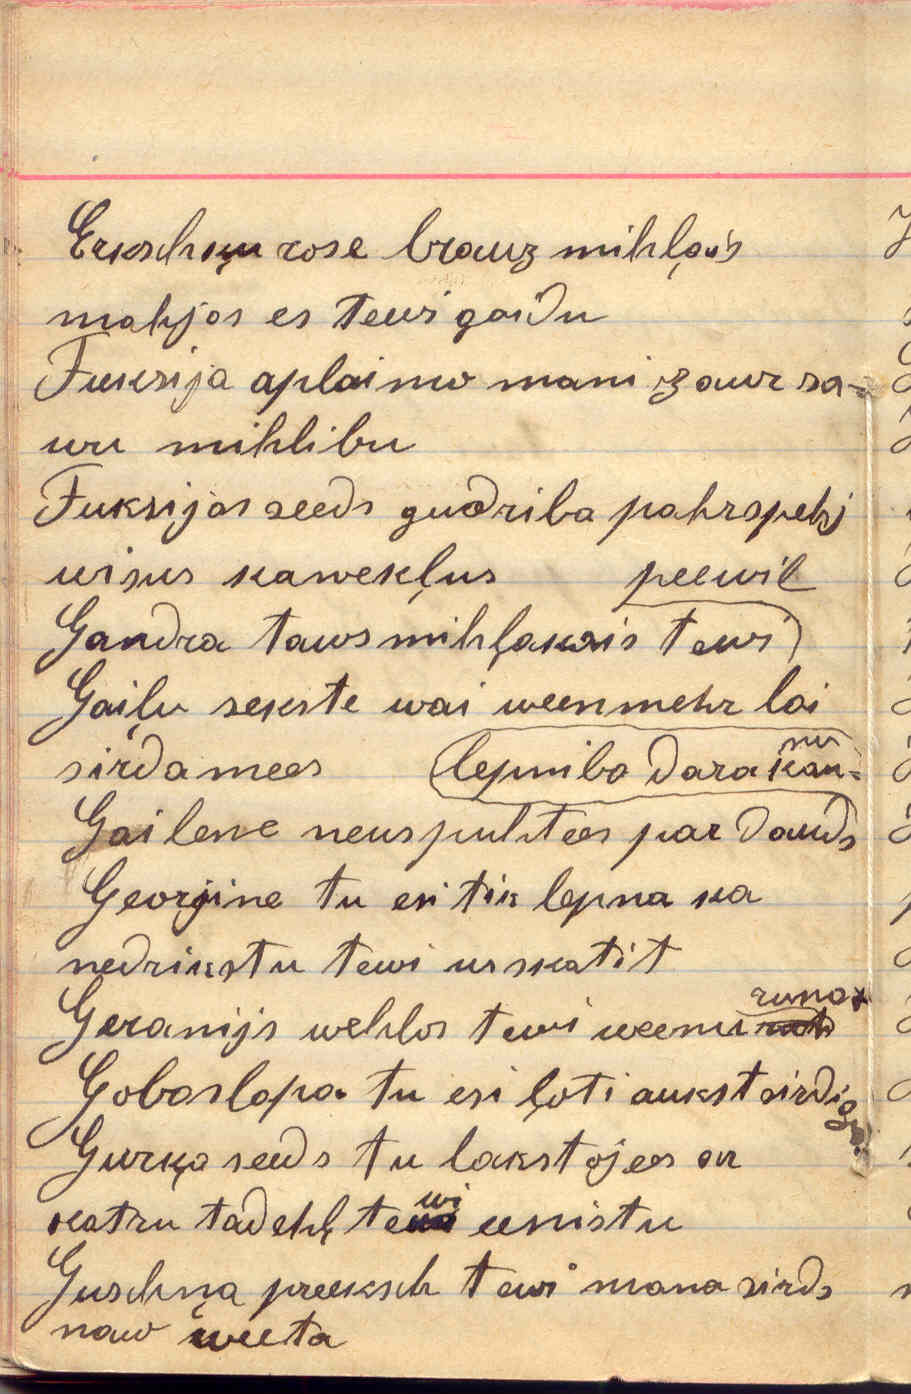 Erkschku rose brauz mihļais
mahjas es tewi gaidu
Fuksija aplaimo mani zaur sa-
wu mihlibu
Fuksijas seeds gudriba pahrspehj
wisus kawekļus peewil
Gandra taws mihļakais tewi
Gaiļu sekste wai ween mehr loi
sirdamees lepniba dara kau-
nu
Gailene neuspuhtees par daudz
Georgine tu esi tik lepna ka
nedrikstu tewi usskatit
Geranijs wehlos tewi weenu
runat
Gobas lapa tu esi ļoti aukstsirdiga
Gurķa seeds tu lakstojees ar
katru tadehļ tewi eenistu
Guschna preeksch tewi mana sirds
naw weeta